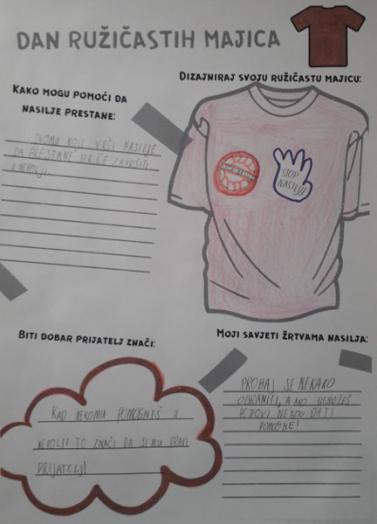 DAN RUŽIČASTIH MAJICA
KAKO MOGU POMOĆI DA
NASILJE PRESTANE:
NASILJE
DA PRESTANE
DIZAJNIRAJ SVOJU RUŽIČASTU MAJICU:
STOP
NASILJE
BITI DOBAR PRIJATELJ ZNAČI:
KAD NEKOMU POMOGNEŠ U
NEVOLJI TO ZNAČI DA SI MU DOBAR
PRIJATELJ!
MOJI SAVJETI ŽRTVAMA NASILJA:
PROBAJ SE NEKAKO
OBRANITI, A AKO NEMOŽEŠ
POZOVI NEKOG DA TI
POMOGNE!